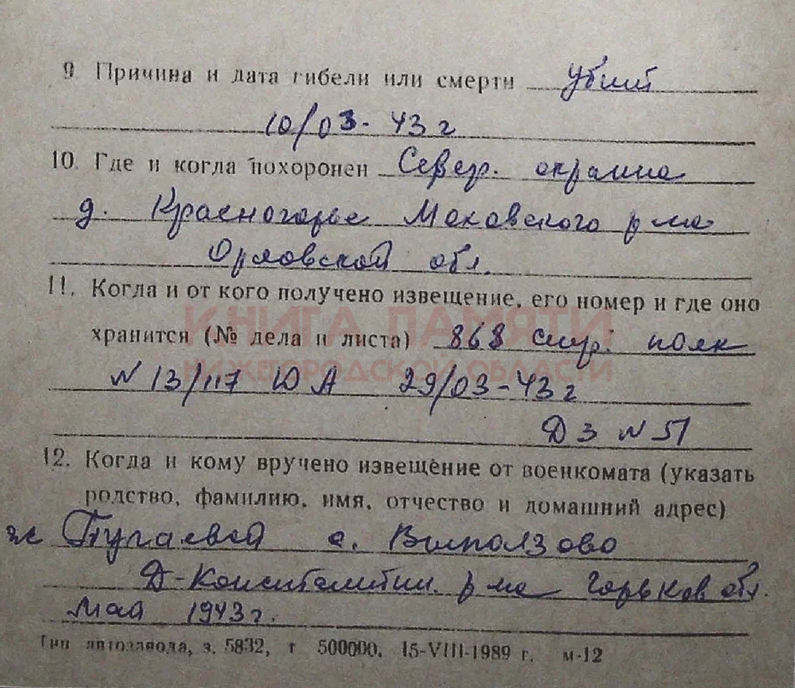 9. Причина и дата гибели или смерти убит
10/03-43 г
10. Где и когда похоронен Север. окраина
д. Красногорье Моховского р-на
Орловской обл.
11. Когда и от кого получено извещение, его номер и где оно
КНИГА ПАМЯТИ
хранится (№ дела и листа) 868 стр. полк
НИЖЕГОРОДСКОЙ ОБЛАСТИ
N 13/117 ЮА 29/03-43 г
Д 3 N 51
12. Когда и кому вручено извещение от военкомата (указать
родство, фамилию, имя, отчество и домашний адрес)
ж Пугаевой с. Выползово
Д-Константин. р-на Горьков обл.
май 1943 г.
Тип автозавода, з. 5832, т 500000. 15-VIII-1989 г. м-12